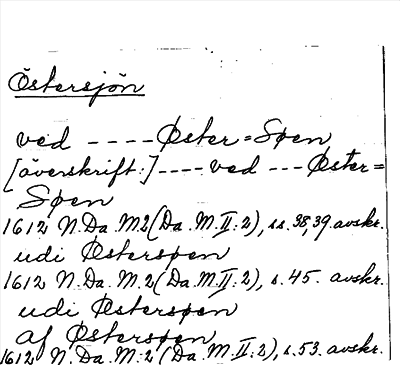 Östersjön
ved ---- Øster=Søen
[överskrift:]---- ved --- Øster=
Søen
1612 N.Da.M.2(Da.M.II:2), ss.38,39.avskr.
udi Østersøen
1612 N.Da.M.2(Da.M.II:2), s.45. avskr.
udi Østersøen
af Østersøen
1612 N.Da.M:2(Da.M.II:2), s.53.avskr.